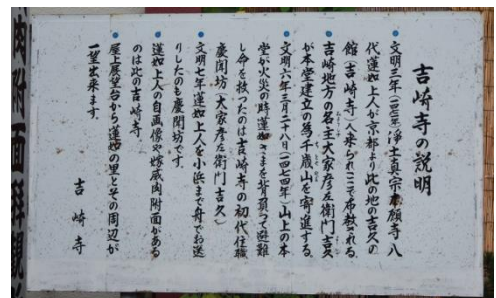 肉附面拝観
吉崎寺の説明
文明三年（一四七一年）浄土真宗本願寺八
代蓮如上人が京都より此の地の吉久の
館（吉崎寺）へ来られここで布教される。
吉崎地方の名主大家彦左衛門吉久
が本堂建立の為千歳山を寄進する。
文明六年三月二十八日（一四七四年）山上の本
堂が火災の時蓮如さまを背負って避難
し命を救ったのは吉崎寺の初代住職
慶聞坊（大家彦左衛門吉久）
文明七年蓮如上人を小浜まで舟でお送
りしたのも慶聞坊です。
蓮如上人の自画像や嫁威肉附面がある
のは此の吉崎寺
屋上展望台から蓮如の里とその周辺が
一望出来ます。
吉崎寺